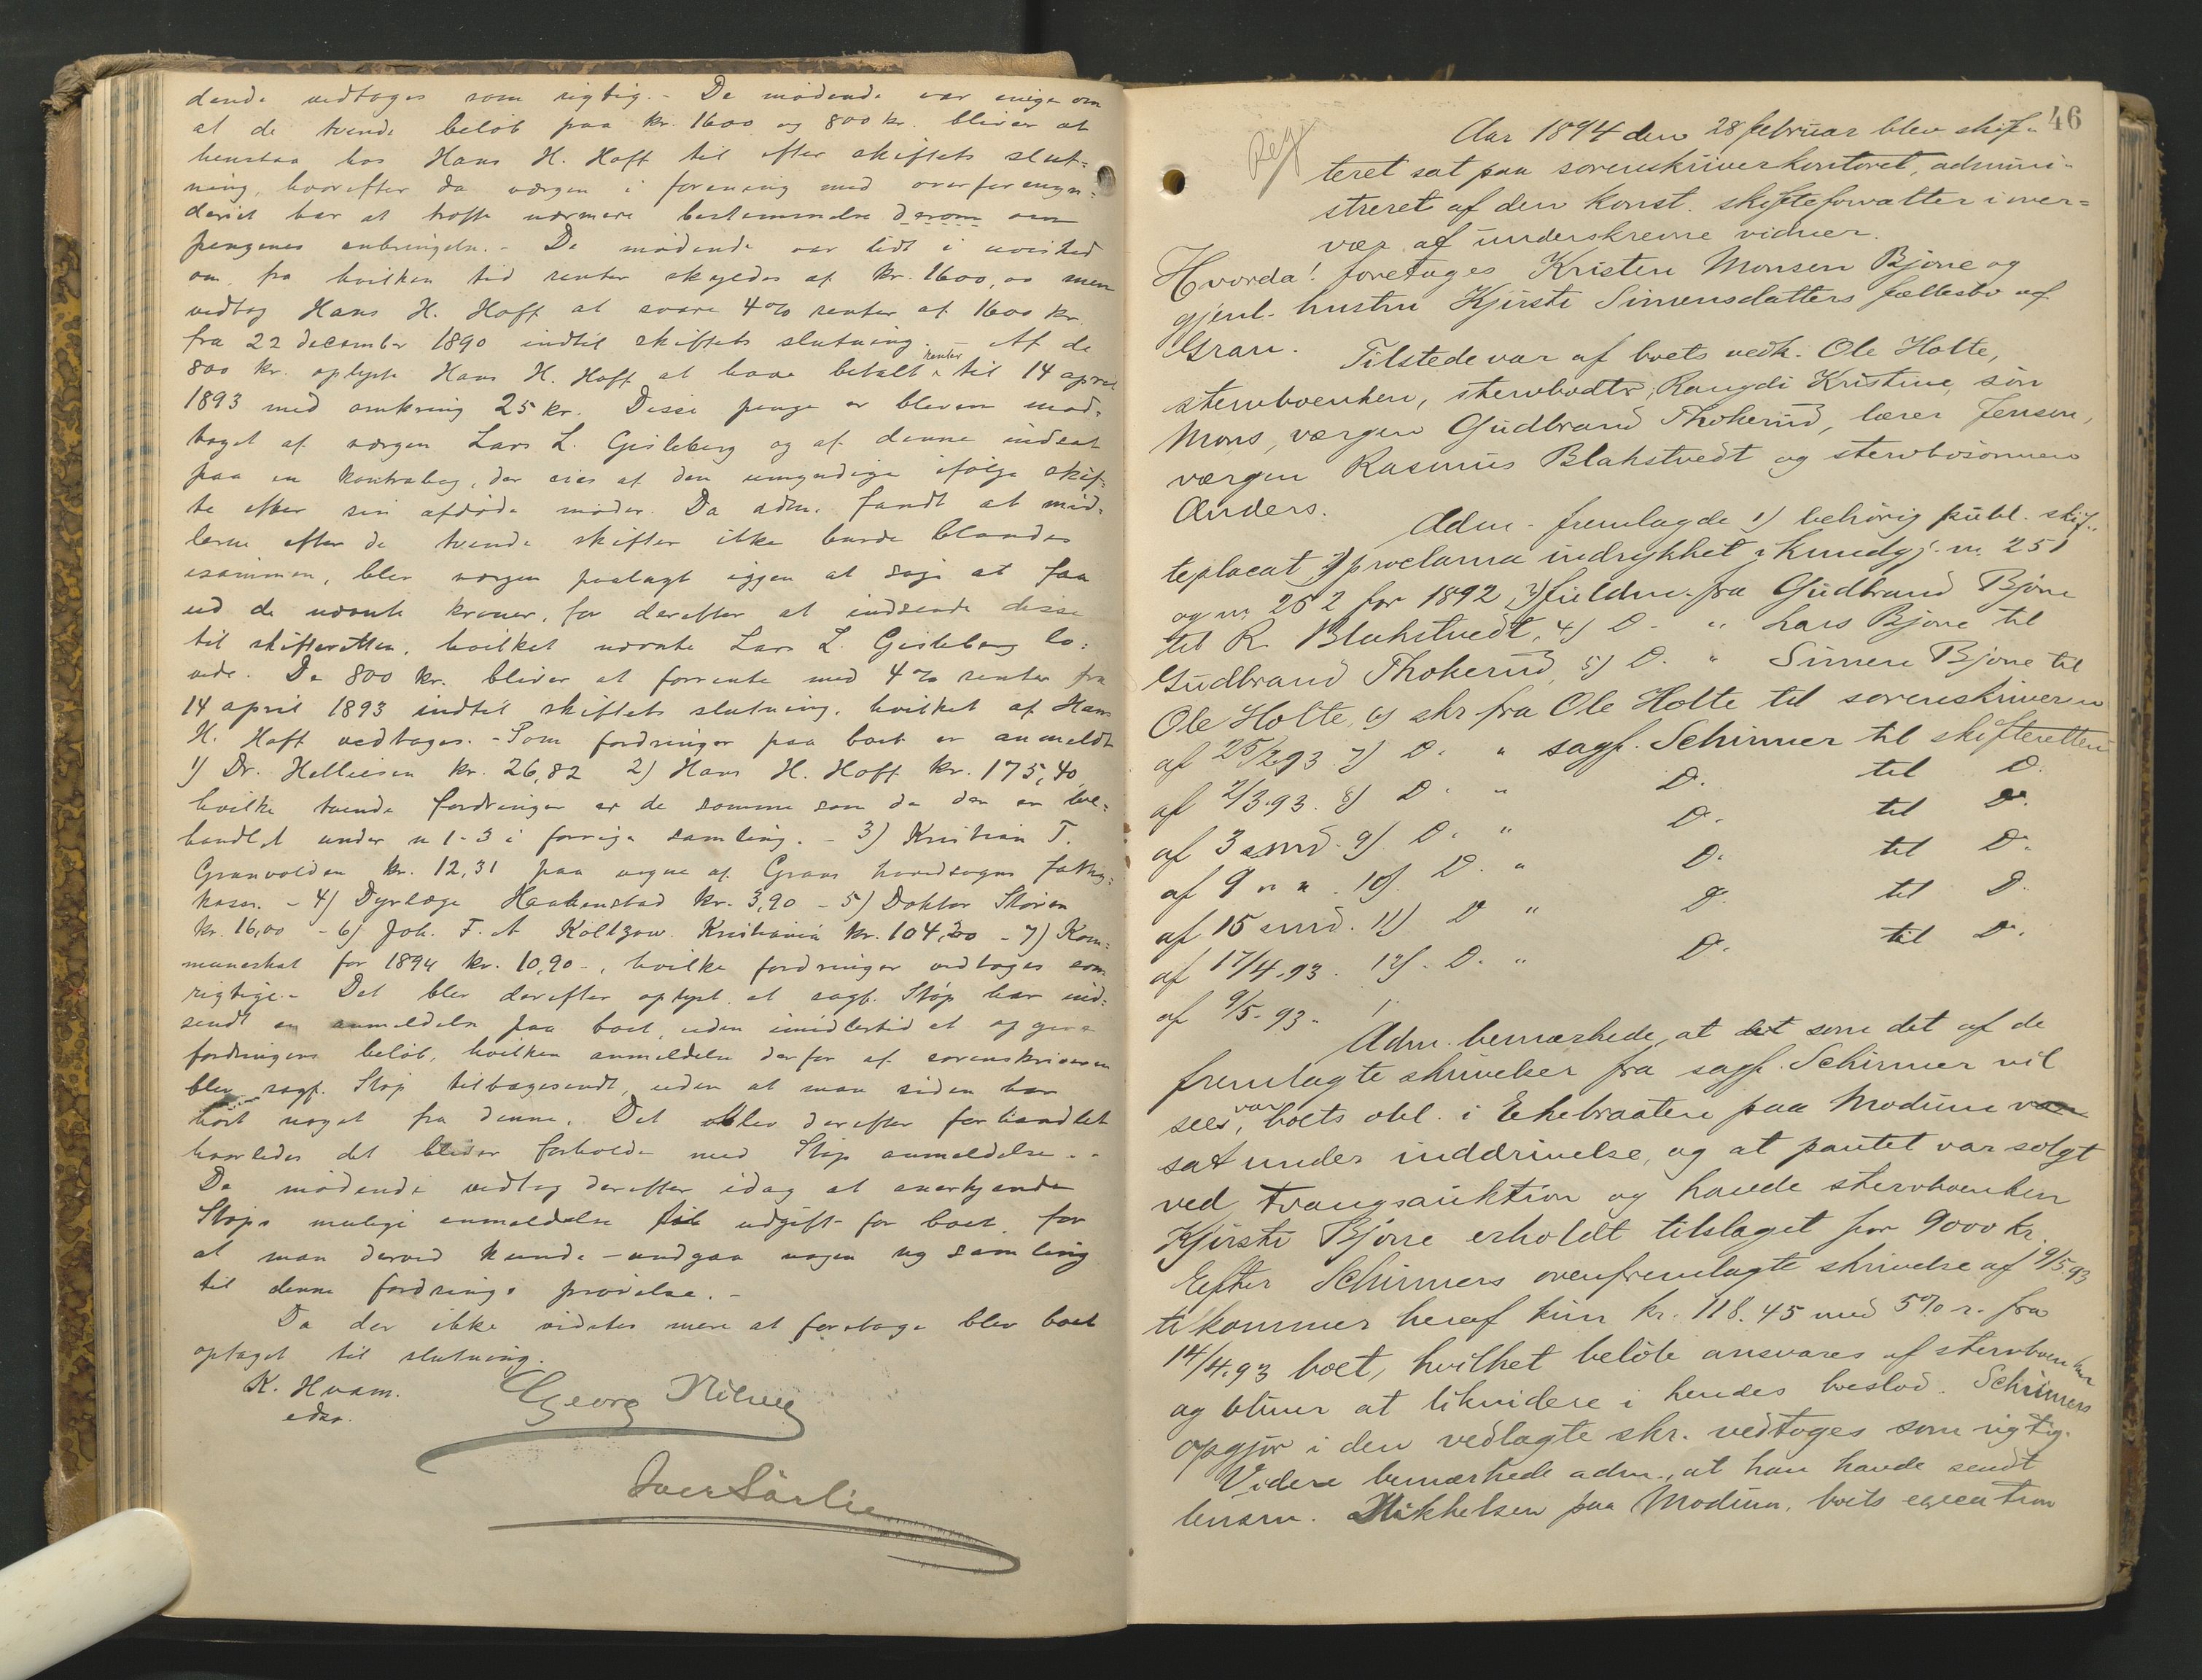 dende vedtoges som rigtig. - De mödende var enige om
at de tvende belöb paa kr. 1600 og 800 kr. bliver at
henstaa hos Hans H. Hoff til efter skiftets slut-
ning, hvorefter da værgen i forening med overformyn=
deriet har at træffe nærmere bestemmelse derom om
pengenes anbringelse. - De mödende var lidt i uvished
om fra hvilken tid renter skyldes af kr. 1600,00 men
vedtog Hans H. Hoff at svare 4% renter af 1600 kr.
fra 22 december 1890 indtil skiftets slutning. - Af de
800 kr. oplyste Hans H. Hoff at have betalt renter til 14 april
1893 med omkring 25 kr. Disse penge er bleven mod=
taget af værgen Lars L. Gisleberg og af denne indsat
paa en kontrabog, der eies af den umyndige ifölge skif=
te efter sin afdöde moder. Da adm. fandt at mid=
lerne efter de tvende skifter ikke burde blandes
isammen, blev værgen paalagt iggen at söge at faa
ud de nævnte kroner, for derefter at indsende disse
til skifteretten, hvilket nævnte Lars L. Gisleberg lo=
vede. De 800 kr. bliver at forrente med 4% renter fra
14 april 1893 indtil skiftets slutning, hvilket af Hans
H. Hoff vedtoges. - Som fordringer paa boet er anmeldt
1) Dr. Helliesen kr. 26,82 2) Hans H. Hoff kr. 175,40
hvilke tvende fordringer er de samme som de der er be=
handlet under n 1-3 i forrige samling. - 3) Kristian T.
Granvolden kr. 12,31 paa vegne af Grans hovedsogns fattig=
kasse. - 4) Dyrlæge Haakenstad kr. 3,90 - 5) Doktor Stören
kr. 16,00 - 6) Joh. F. A Koltzow. Kristiania kr. 104,20 - 7) Kom=
muneskat for 1894 kr. 10,90 -, hvilke fordringer vedtoges som
rigtige. - Det blev derefter oplyst at sagf. Stöp har ind=
sendt en anmeldelse paa boet, uden imidlertid at opgive
fordringens belöb, hvilken anmeldelse derfor af sorenskriveren
blev sagf. Stöp tilbagesendt, uden at man siden har
hört noget fra denne. Det blev derefter forhandlet
hvorledes det bliver forholde med Stöps anmeldelse. -
De mödende vedtog derefter idag at anerkjende
Stöps mulige anmeldelse til udgift for boet, for
at man derved kunde - undgaa nogen ny samling
til denne fordrings prövelse. -
Da der ikke vidstes mere at foretage blev boet
optaget til slutning.
K. Hvam.
edsv.
Georg
Iver Sörlie
46
Reg
Aar 1894 den 28 februar blev skif-
teret sat paa sorenskriverkontoret, admini-
streret af den konst. skifteforvalter i over=
vær af underskrevne vidner.
Hvorda! foretoges Kristen Monsen Bjone og
gjenl. hustru Kjirsti Simensdatters fællesbo af
Gran.
Tilstede var af boets vedk. Ole Holte,
stervboenken, stervbodtr, Rangdi Kristine, sön
Mons, værgen Gudbrand Thokerud, lærer Jensen,
værgen Rasmus Blakstvedt og stervbosönnen
Anders.
Adm. fremlagde 1) behörig publ. skif-
teplacat 2) proclama indrykket i Kundgj. n. 251
og n. 252 for 1892 3) fuldm. fra Gudbrand Bjone
til R. Blakstvedt, 4) D. " Lars Bjone til
Gudbrand Thokerud, 5) D. " Simen Bjone til
Ole Holte, 6) skr fra Ole Holte til sorenskriveren
af 25/2 93. 7) D. " sagf. Schirmer til skifteretten
af 2/3.93. 8) D. " D. til D.
af 3 smd. 9) D. " D. til D.
af 9 " " . 10) D. " D. til D.
af 15 smd. 11) D " D. til D.
af 17/4.93. 12). D. " D. til D.
af 9/5.93.
Adm. bemærkede, at det som det af de
fremlagte skrivelser fra sagf. Schirmer vil
sees, var boets obl. i Ekebraaten paa Modum var
sat under inddrivelse, og at pantet var solgt
ved tvangsauktion og havde stervboenken
Kjirsti Bjone erholdt tilslaget for 9000 kr.
Efter Schirmers ovenfremlagte skrivelse af 9/5.93
tilkommer heraf kun kr. 118.45 med 5% r. fra
14/4.93 boet, hvilket belöb ansvares af stervboenken
og bliver at likvidere i hendes boslod. Schirmers
opgjör i den vedlagte skr. vedtoges som rigtig.
Videre bemærkede adm., at han havde sendt
lensm. Mikkelsen paa Modum, boets execution